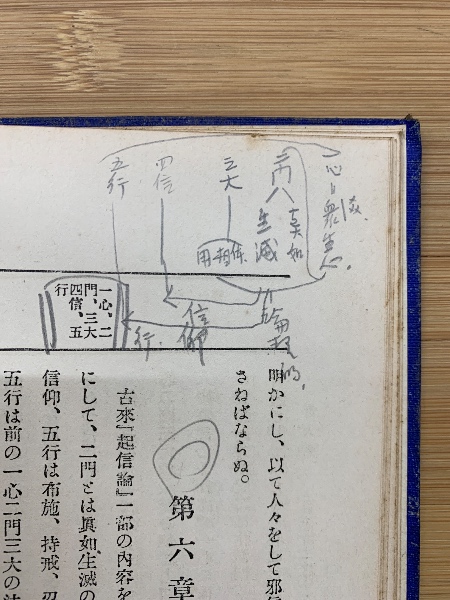 一心=衆生心
二門
真如
生滅
三大
体相用
四信
五行
論理的
信仰
行
一心、二
門、三大
四信、五
行
明かにし、以て人々をして邪
さねばならぬ。
第六章
古來『起信論』一部の内容を
にして、二門とは眞如、生滅の
信仰、五行は布施、持戒、忍
五行は前の一心二門三大の法